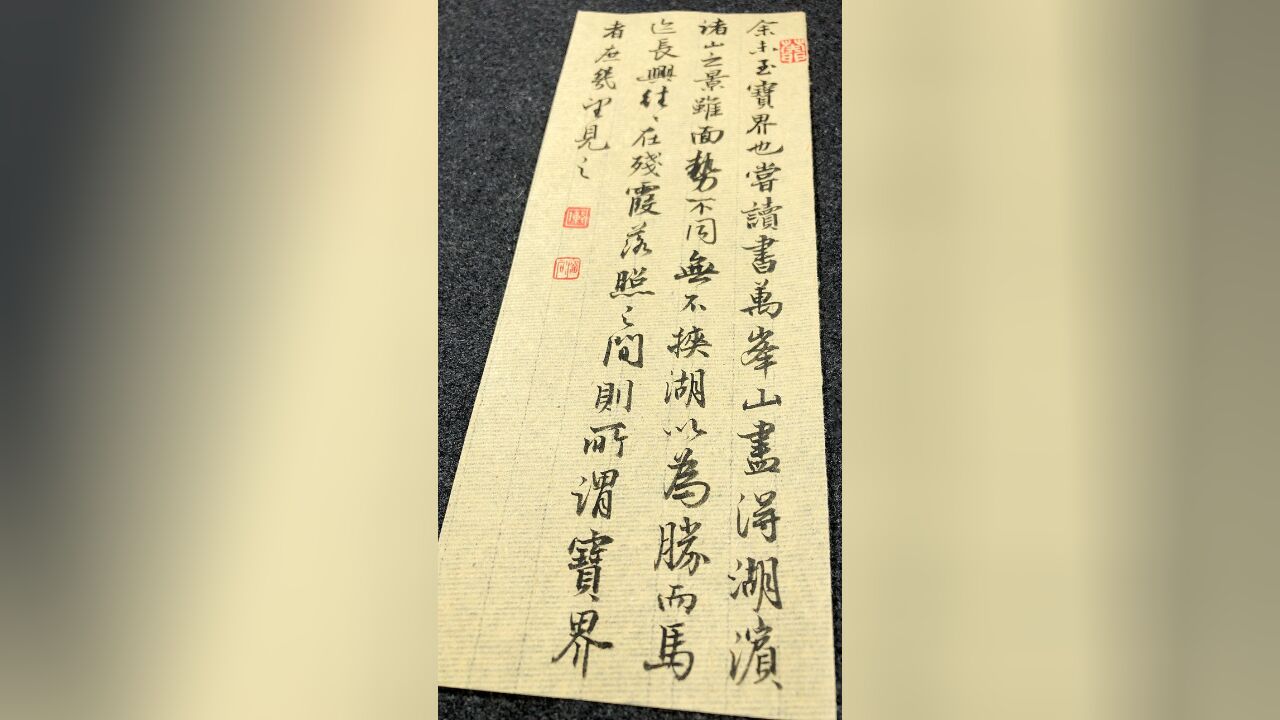 余未至寶界也嘗讀書萬峯山盡得湖濱
諸山之景雖面勢不同無不挾湖以為勝而馬
迹長興往〻在殘霞落照之間則所謂寶界
者庶幾望見之